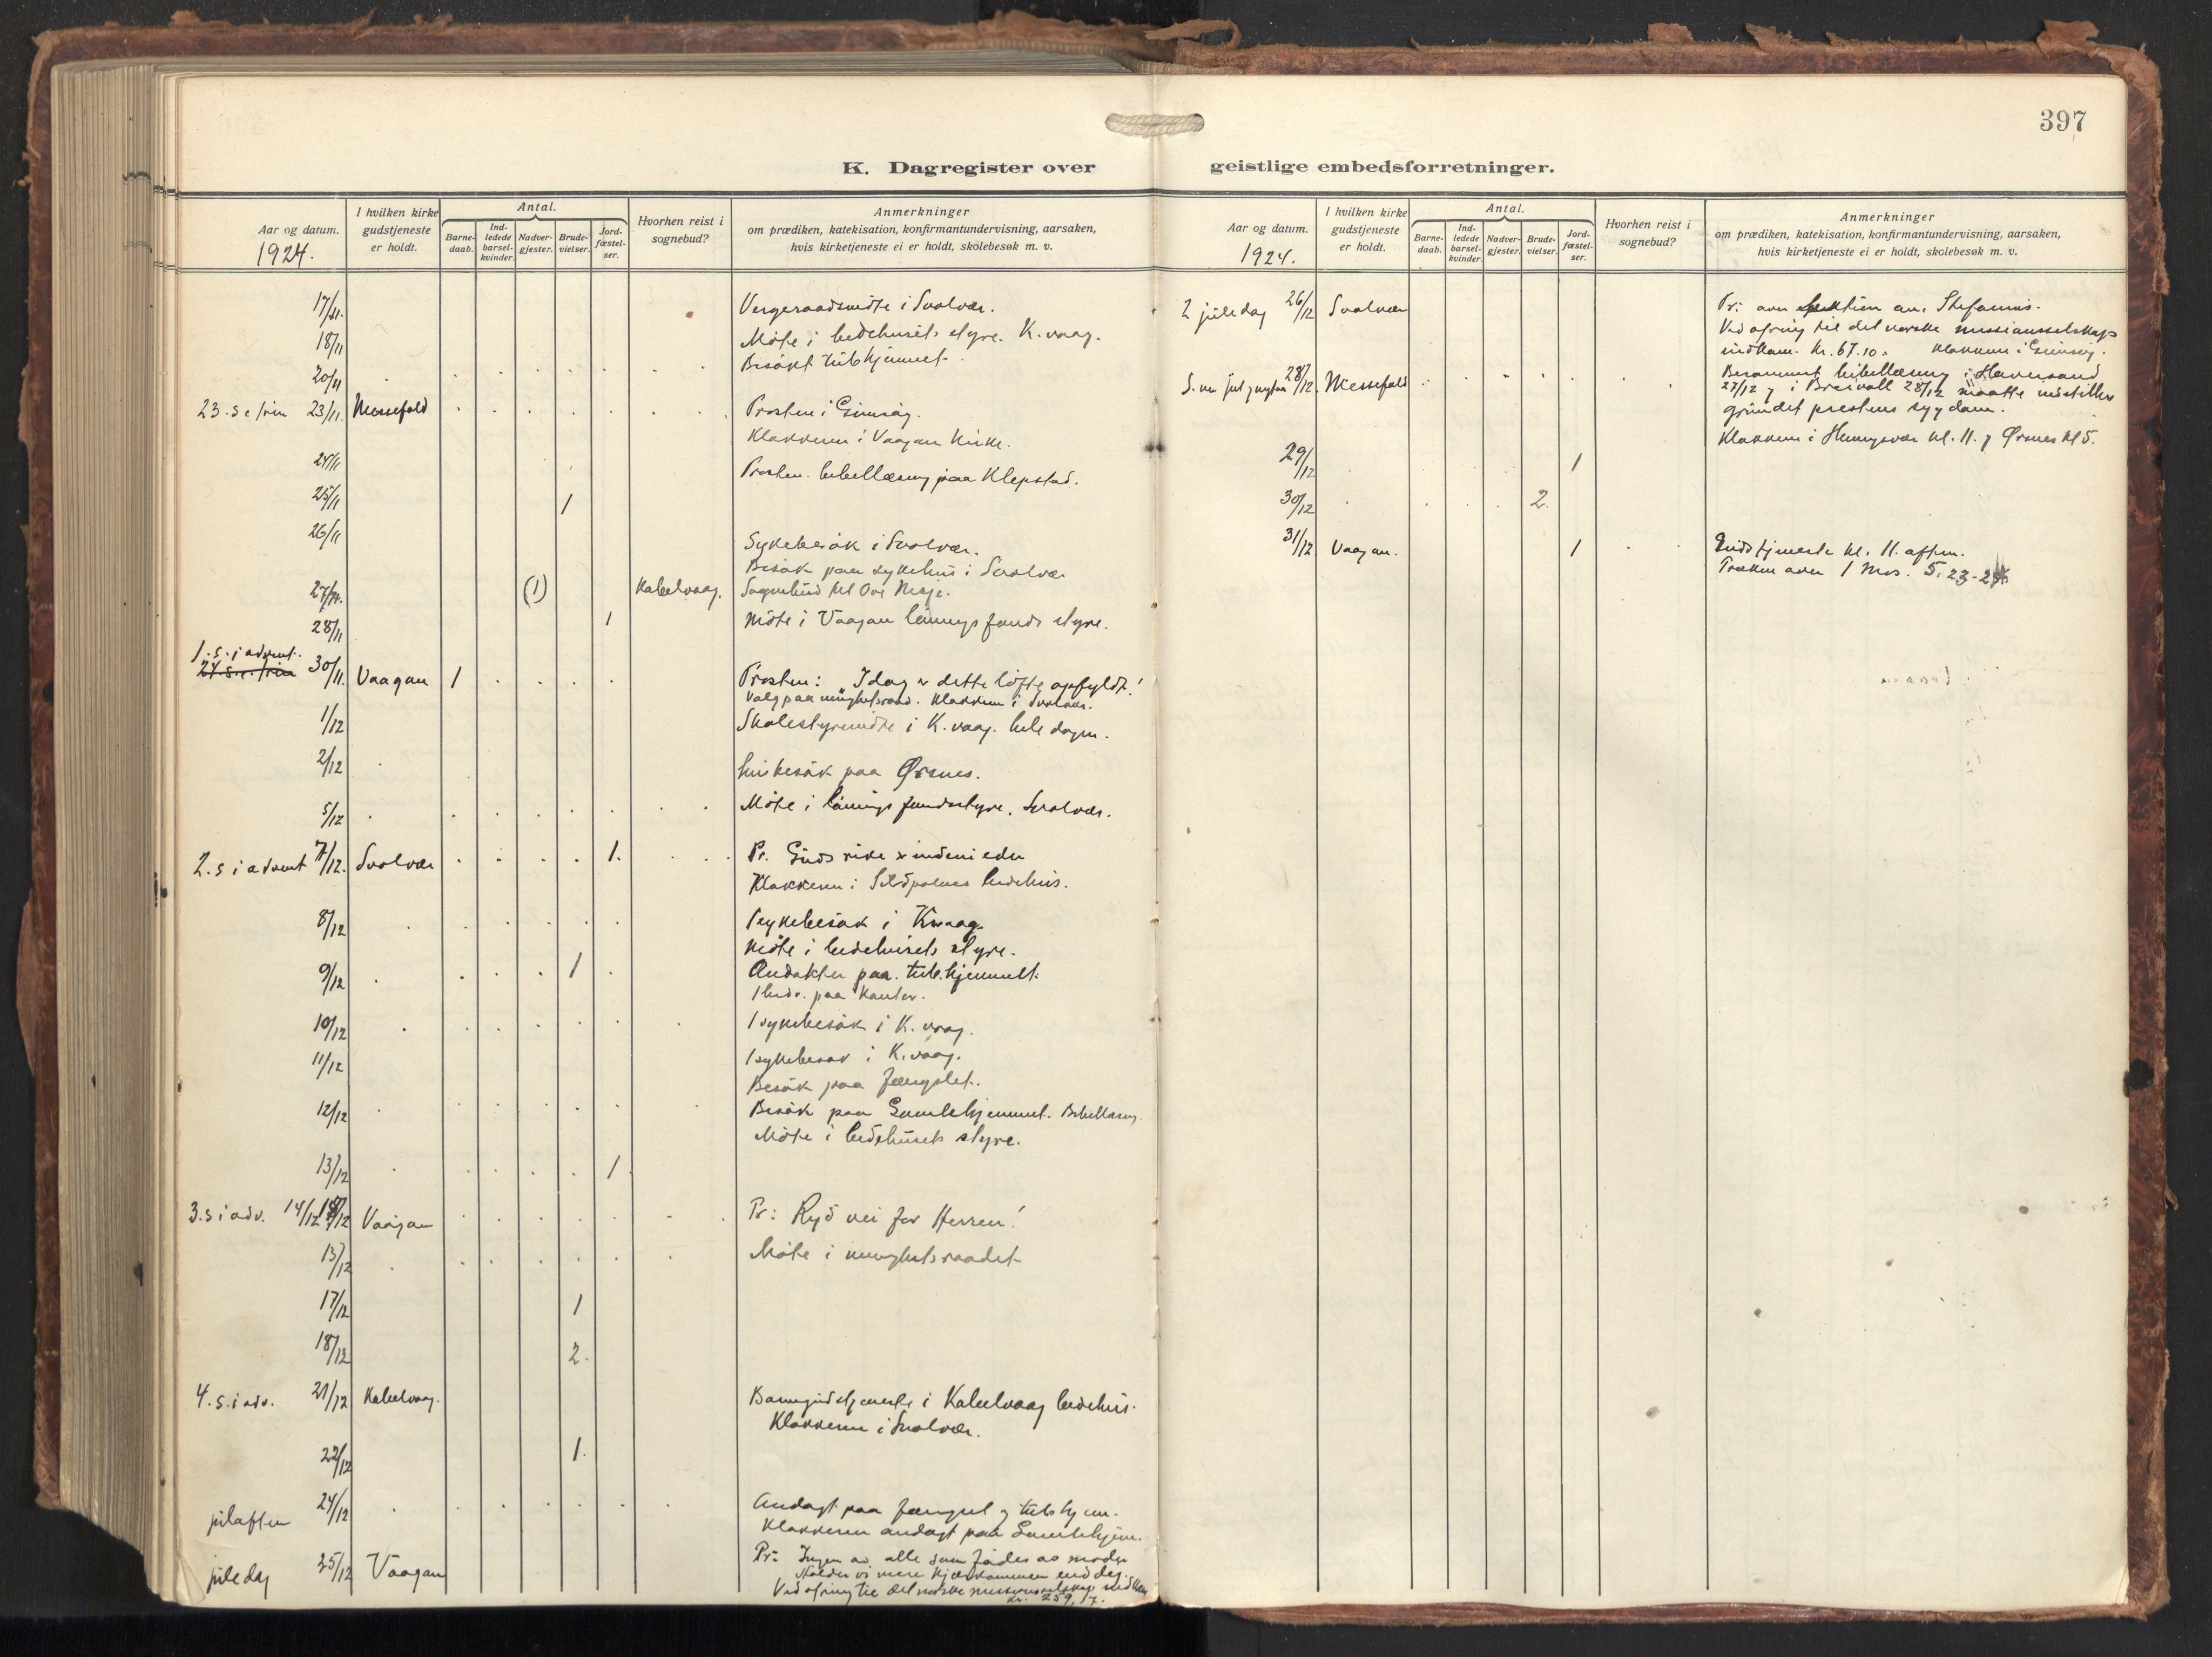 397
K. Dagregister over geistlige embedsforretninger.
Aar og datum.
1924.
I hvilken kirke gudstjeneste er holdt.
Antal.
Barne-daab.
Ind-ledede barsel-kvinder.
Nadver-gjester.
Brude-vielser.
Jord-fæstel-ser.
Hvorhen reist i sognebud?
Anmerkninger
om prædiken, katekisation, konfirmantundervisning, aarsaken,
hvis kirketjeneste ei er holdt, skolebesøk m. v.
17/11. Vergeraadsmöte i Svolvær.
18/11 Möte i bedehusets styre. K.vaag.
20/11 Besökt tub.hjemmet.
23. s e/trin 23/11. Messefold Prosten i Gimsöy.
Klokkeren i Vaagan kirke.
24/11 Prosten. bibellæsning paa Klepstad.
25/11 1
26/11 Sykebesök i Svolvær.
Besök paa sykehus i Svolvær
27/11. (1) Kabelvaag. Sognebud til Ove Nesje.
28/11 1 Möte i Vaagan lönnings fonds styre.
1. s. i advent.
24. s. e. trin 30/11. Vaagan 1 Prosten: I dag er dette löfte opfyldt!
Valg paa menighetsraad. Klokkeren i Svolvær.
1/12 Skolestyremöte i K.vaag. hele dagen.
2/12 husbesök paa Ørsnes.
5/12 Möte i lönnings fondsstyre. Svolvær.
2. s i advent 7/12. Svolvær 1. Pr. Guds rike er inden i eder
Klokkeren i bedehus.
8/12 1 sykebesök i K.vaag.
Möte i bedehusets styre.
9/12 1 Andakter paa tub.hjemmet.
paa kontor.
10/12 1 sykebesök i K.vaag.
11/12 1 sykebesök i K.vaag.
Besök paa fængslet.
12/12 Besök paa Gamlehjemmet. Bibellæsning
Möte i bedehusets styre.
13/12 1
3. s i adv. 14/12 Vaagan Pr: Ryd vei for Herren!
15/12 Möte i menighetsraadet
17/12 1
18/12 2.
4. s. i adv. 21/12 Kabelvaag. Barnegudstjeneste i Kabelvaag bedehus.
Klokkeren i Svolvær.
22/12 1.
juleaften 24/12 Andagt paa fængsel og tub.hjem.
Klokkeren andagt paa Gamlehjem.
juledag 25/12 Vaagan Pr: Ingen av alle som födes av moder
holder vi mere hjærtkommen end deg.
Ved ofring til det norske missionsselskap indkom
kr. 259,
Aar og datum.
1924.
I hvilken kirke gudstjeneste er holdt.
Antal.
Barne-daab.
Ind-ledede barsel-kvinder.
Nadver-gjester.
Brude-vielser.
Jord-fæstel-ser.
Hvorhen reist i sognebud?
Anmerkninger
om prædiken, katekisation, konfirmantundervisning, aarsaken,
hvis kirketjeneste ei er holdt, skolebesøk m. v.
2 juledag 26/12 Svolvær Pr: over teksten om Stefanus.
Ved ofring til det norske missionsselskap
indkom. kr. 67.10. Klokkeren i Gimsöy.
S. m. jul og nytaar 28/12. Messefold Berammet bibellæsning i Havnsund
27/12 og i Breivoll 28/12 maatte indstilles
grundet prestens sygdom.
Klokkeren i Henningsvær kl. 11. og Ørsnes kl 5.
29/12 1
30/12 2.
31/12 Vaagan. 1 Gudstjeneste kl. 11. aften.
Præken over 1 Mos. 5. 23-24